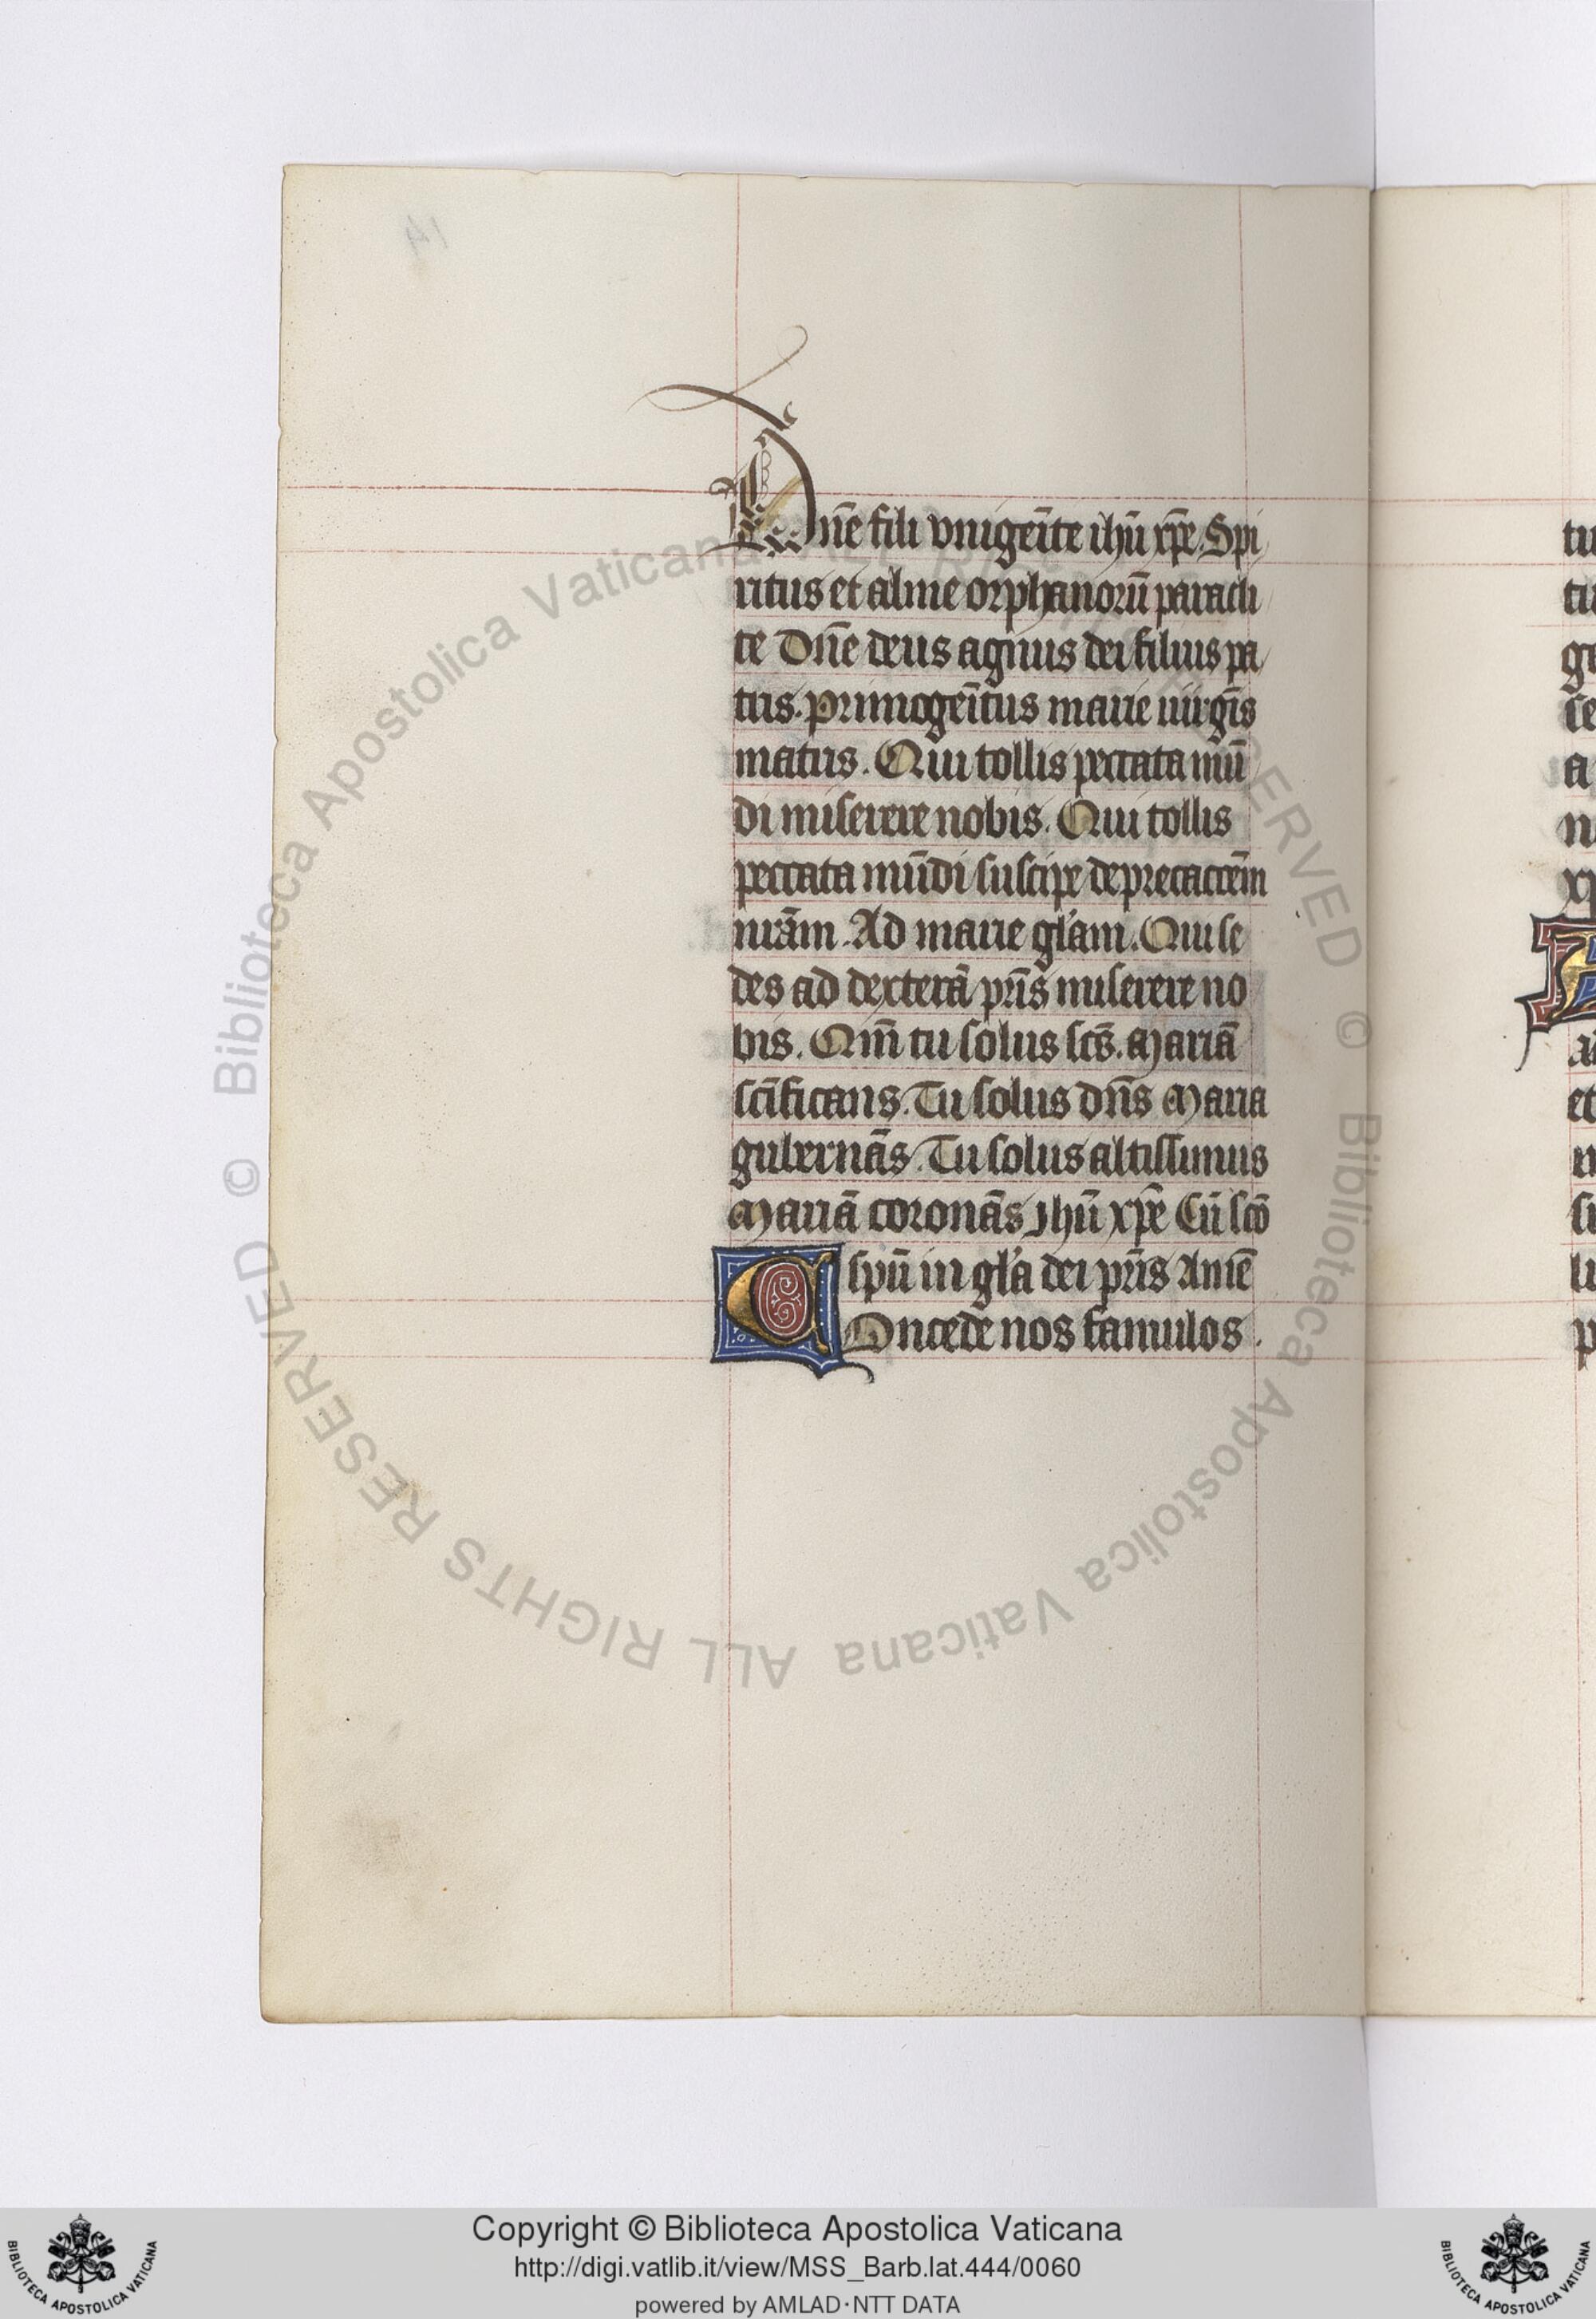 Dn̄e fili vnigeīte ihū xp̄e. Spi
ritus et alme orphanorū paracli
te Dn̄e deus agnus dei filius pa
tris. primogeītus marie uirgīs
matris. Qui tollis peccata mū
di miserere nobis. Qui tollis
peccata mūdi suscipe deprecaccēm
nrām. Ad marie glām. Qui se
des ad dexterā pr̄is miserere no
bis. Qm̄ tu solus scs̄. Mariā
scīficans. Tu solus dn̄s Maria
gubernās. Tu solus altissimus
Mariā coronās Jhū xp̄e Cū scō
spū in glā dei pr̄is Amē
COncede nos famulos.
tu
tu
ge
ce
a
n
xp
et
li
p
© Biblioteca Apostolica Vaticana ALL RIGHTS RESERVED © Biblioteca Apostolica Vaticana ALL RIGHTS RESERVED
Copyright © Biblioteca Apostolica Vaticana
http://digi.vatlib.it/view/MSS_Barb.lat.444/0060
powered by AMLAD·NTT DATA
BIBLIOTECA APOSTOLICA VATICANA
BIBLIOTECA APOSTOLICA VATICANA